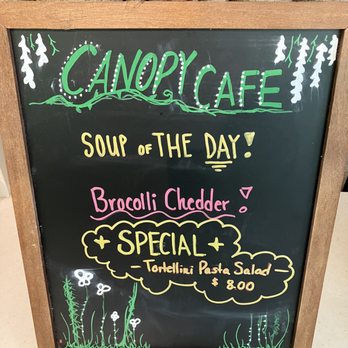 CANOPY CAFE
SOUP OF THE DAY!
Brocolli Chedder!
+ SPECIAL +
- Tortellini Pasta Salad -
$ 8.00